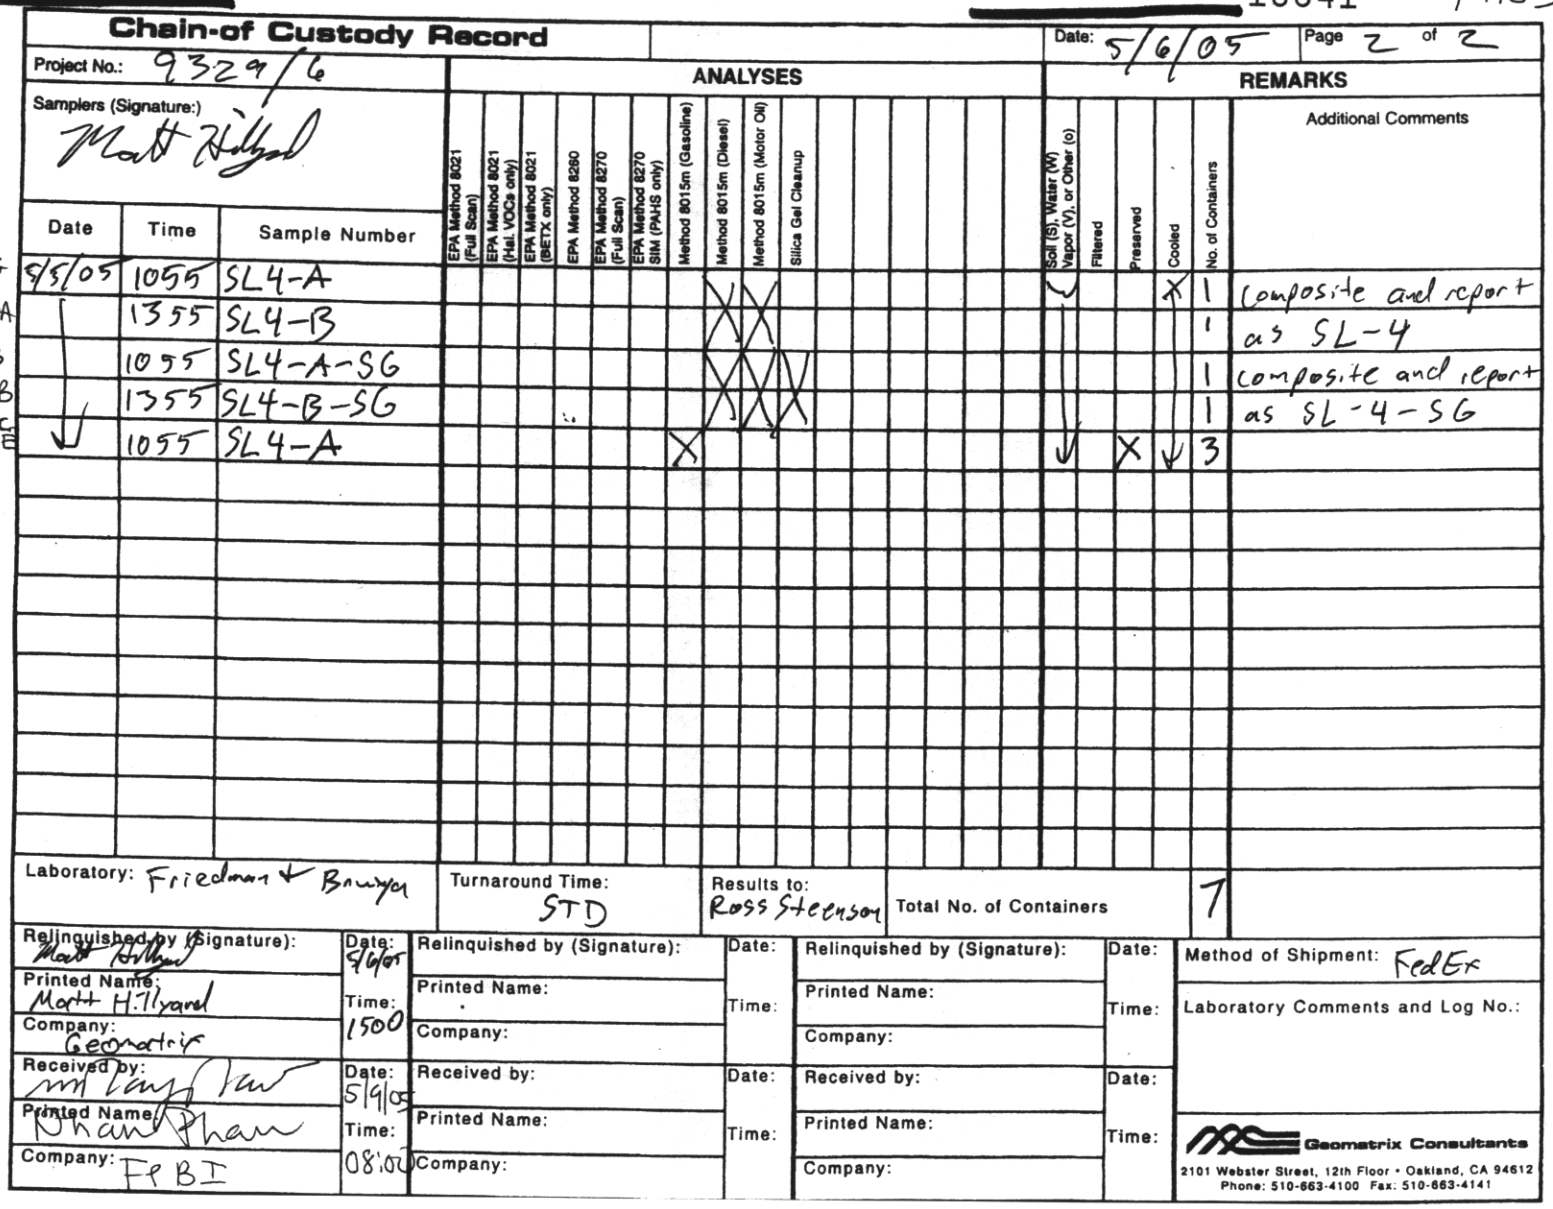 Chain-of Custody Record
Date: 5/6/05 Page 2 of 2
Project No.: 9329/6
ANALYSES
REMARKS
Samplers (Signature:)
Matt Hillyard
EPA Method 8021 (Full Scan)
EPA Method 8021 (Hal. VOCs only)
EPA Method 8021 (BETX only)
EPA Method 8260
EPA Method 8270 (Full Scan)
EPA Method 8270 SIM (PAHS only)
Method 8015m (Gasoline)
Method 8015m (Diesel)
Method 8015m (Motor Oil)
Silica Gel Cleanup
Soil (S), Water (W) Vapor (V), or Other (o)
Filtered
Preserved
Cooled
No. of Containers
Additional Comments
Date Time Sample Number
5/5/05 1055 SL4-A X X W X 1 composite and report
1355 SL4-B 1 as SL-4
1055 SL4-A-SG X X X 1 composite and report
1355 SL4-B-SG 1 as SL-4-SG
1055 SL4-A X X 3
Laboratory: Friedman + Bruya
Turnaround Time: STD
Results to: Ross Steenson
Total No. of Containers 7
Relinquished by (Signature): Matt Hillyard
Date: 5/6/05
Printed Name: Matt Hillyard
Time: 1500
Company: Geomatrix
Received by:
Date: 5/9/05
Printed Name: Nhan Phan
Time: 08:00
Company: F&BI
Relinquished by (Signature): Date:
Printed Name: Time:
Company:
Received by: Date:
Printed Name: Time:
Company:
Relinquished by (Signature): Date:
Printed Name: Time:
Company:
Received by: Date:
Printed Name: Time:
Company:
Method of Shipment: FedEx
Laboratory Comments and Log No.:
Geomatrix Consultants
2101 Webster Street, 12th Floor • Oakland, CA 94612
Phone: 510-663-4100 Fax: 510-663-4141